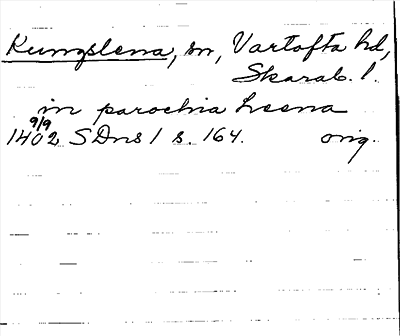 Kungslena, sn, Vartofta hd,
Skarab. l.
in parochia Leena
1402 9/9 SDns 1 s. 164. orig.